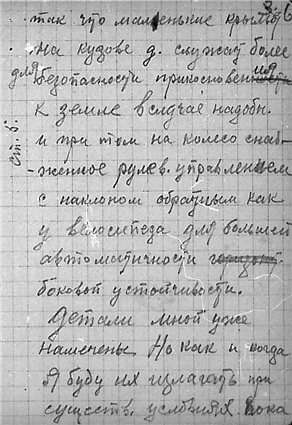 так что маленькие крылья
на кузове д. служат более
для безопасности прикосновения
к земле в случае надобн.
и при том на колесо снаб-
-женное рулев. управлением
с наклоном обратным как
у велосипеда для большей
автоматичности
боковой устойчивости.
Детали мной уже
намечены. Но как и когда
я буду их излагать при
существ. условиях. пока